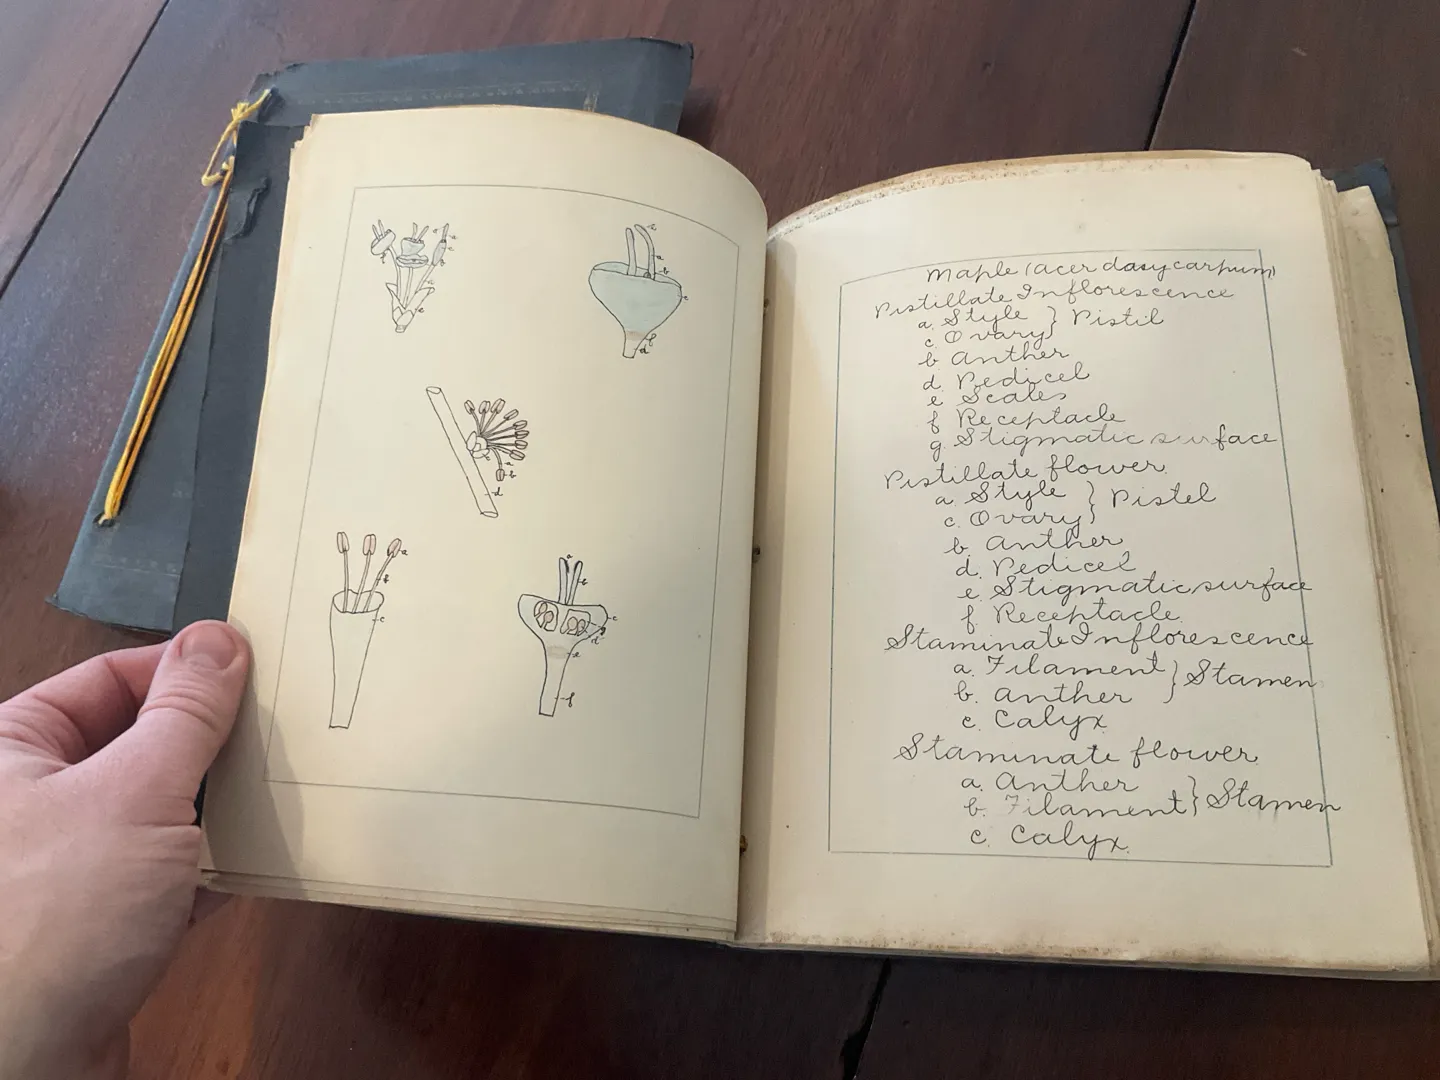 Maple (acer dasycarpum)
Pistillate Inflorescence
a. Style } Pistil
c. Ovary
b Anther
d. Pedicel
e Scales
f Receptacle
g. Stigmatic surface
Pistillate flower.
a. Style } Pistel
c. Ovary
b. Anther
d. Pedicel
e. Stigmatic surface
f. Receptacle.
Staminate Inflorescence
a. Filament } Stamen
b. Anther
c. Calyx
Staminate flower.
a. Anther } Stamen
b. Filament
c. Calyx.